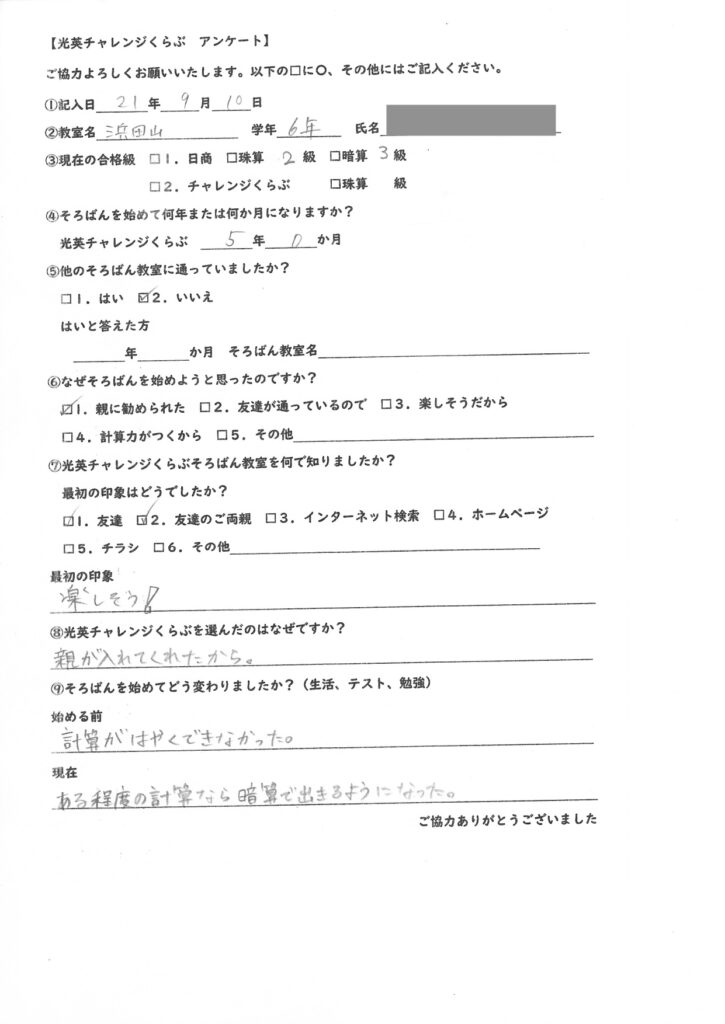 【光英チャレンジくらぶ アンケート】
ご協力よろしくお願いいたします。以下の□に〇、その他にはご記入ください。
①記入日 21 年 9 月 10 日
②教室名 浜田山 学年 6年 氏名
③現在の合格級 □1．日商 □珠算 2 級 □暗算 3 級
□2．チャレンジくらぶ □珠算 級
④そろばんを始めて何年または何か月になりますか？
光英チャレンジくらぶ 5 年 0 か月
⑤他のそろばん教室に通っていましたか？
□1．はい ☑2．いいえ
はいと答えた方
年 か月 そろばん教室名
⑥なぜそろばんを始めようと思ったのですか？
☑1．親に勧められた □2．友達が通っているので □3．楽しそうだから
□4．計算力がつくから □5．その他
⑦光英チャレンジくらぶそろばん教室を何で知りましたか？
最初の印象はどうでしたか？
☑1．友達 ☑2．友達のご両親 □3．インターネット検索 □4．ホームページ
□5．チラシ □6．その他
最初の印象
楽しそう！
⑧光英チャレンジくらぶを選んだのはなぜですか？
親が入れてくれたから。
⑨そろばんを始めてどう変わりましたか？（生活、テスト、勉強）
始める前
計算がはやくできなかった。
現在
ある程度の計算なら暗算で出きるようになった。
ご協力ありがとうございました